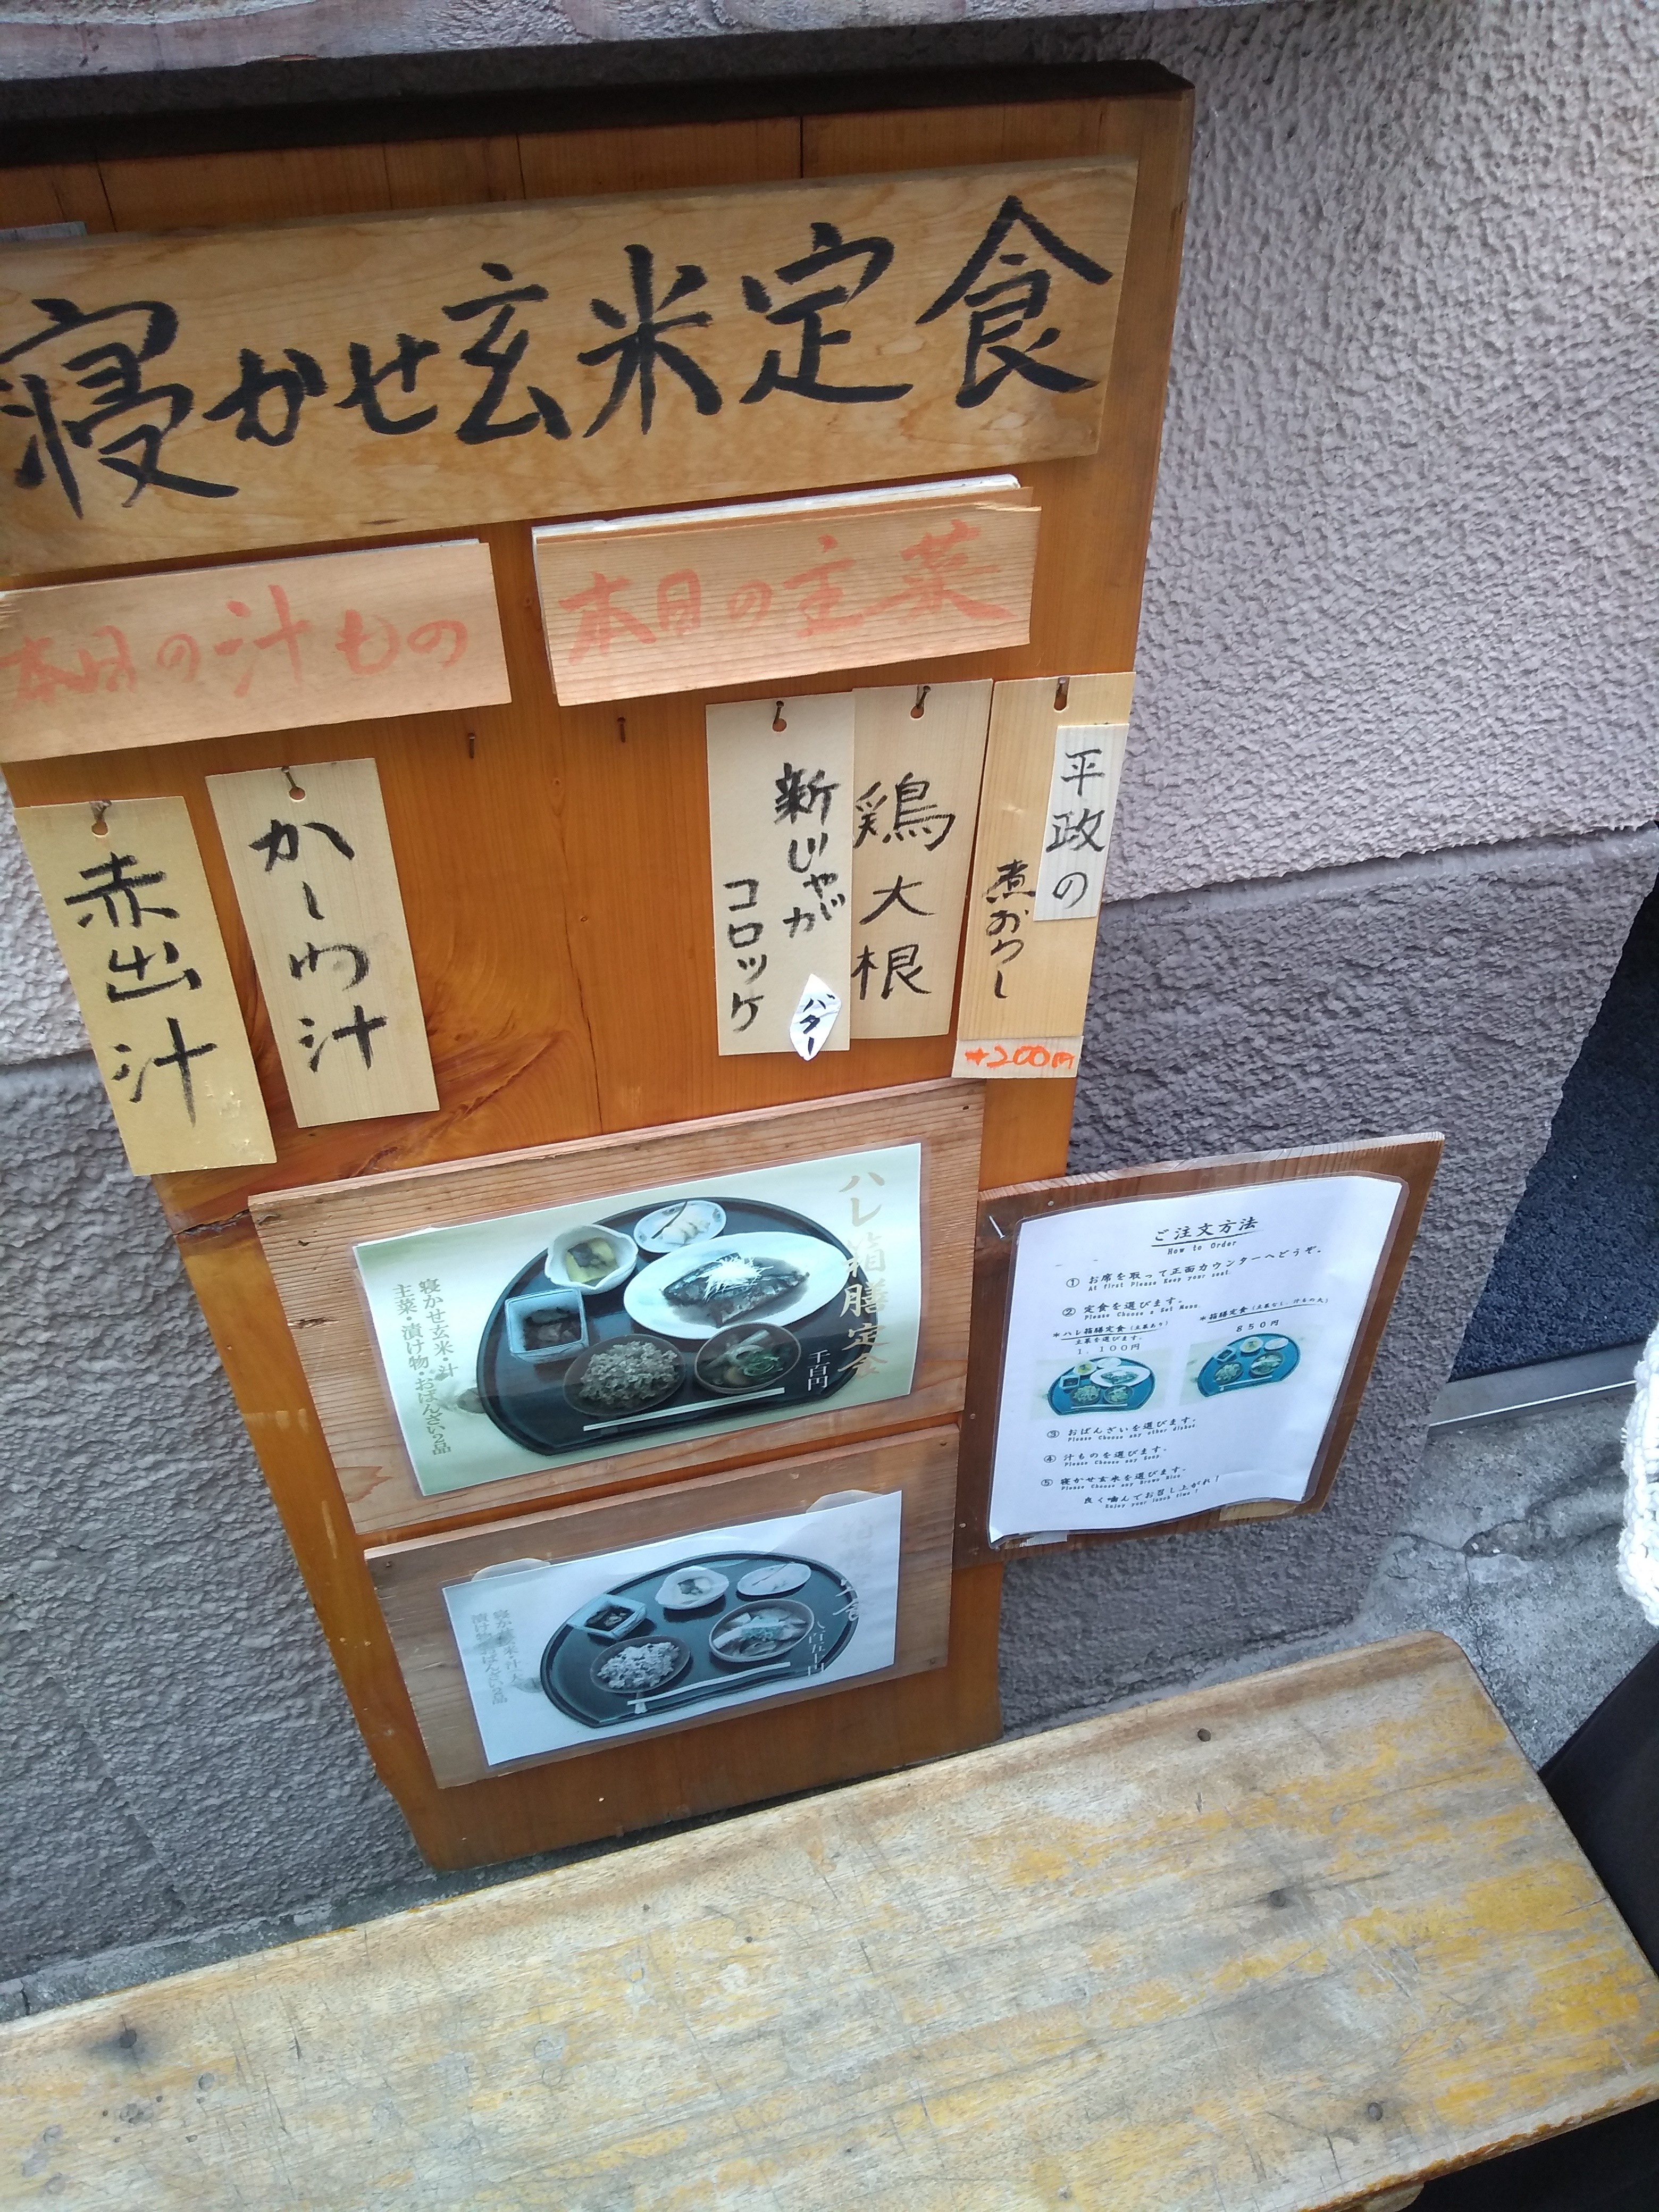 寝かせ玄米定食
本日の主菜
本日の汁もの
平政の
煮おろし
+200円
鶏大根
新じゃが
コロッケ
バター
かしわ汁
赤出汁
ハレ箱膳定食
千百円
寝かせ玄米・汁
主菜・漬け物・おばんざい2品
ご注文方法
How to Order
① お席を取って正面カウンターへどうぞ。
At first Please Keep your seat.
② 定食を選びます。
Please Choose a Set Menu.
*ハレ箱膳定食(主菜あり)
主菜を選びます。
1,100円
*箱膳定食(主菜なし・汁もの大)
850円
③ おばんざいを選びます。
Please Choose any other dishes
④ 汁ものを選びます。
Please Choose any Soup.
⑤ 寝かせ玄米を選びます。
Please Choose any Brown Rice
良く噛んでお召し上がれ!
Enjoy your lunch time!
八百五十円